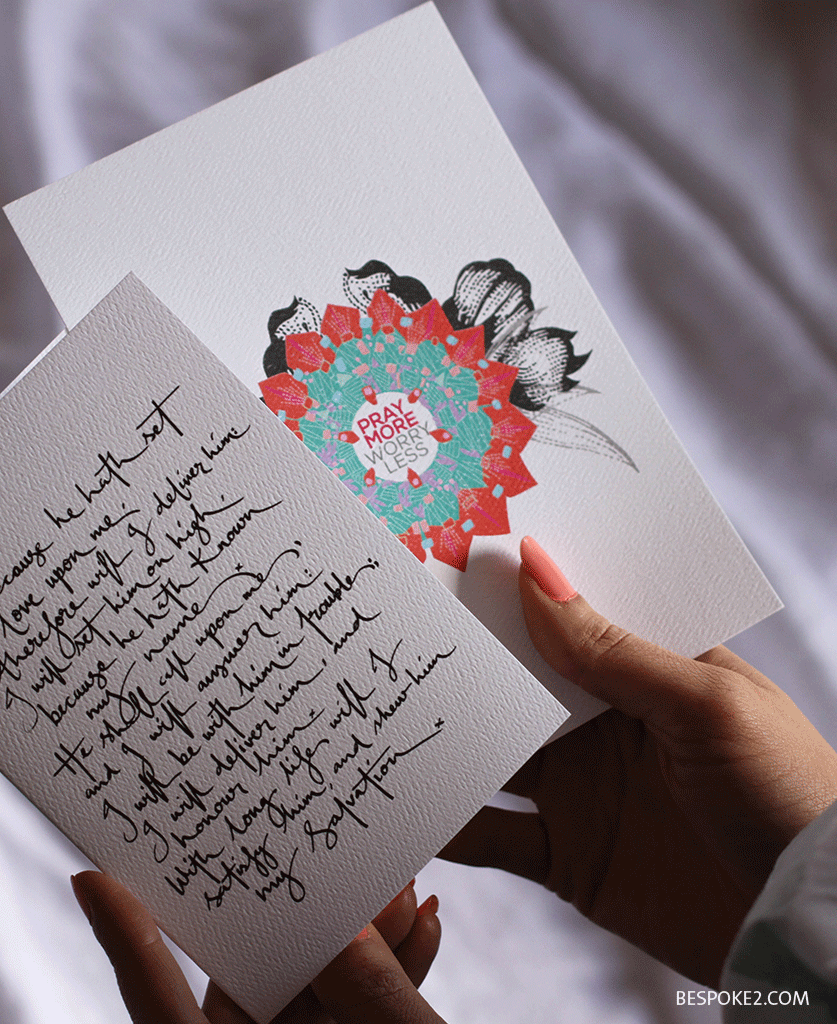 PRAY
MORE
WORRY
LESS
ecause he hath set
love upon me:
therefore will I deliver him:
I will set him on high,
because he hath known
my name.
He shall call upon me,
and I will answer him:
I will be with him in trouble;
I will deliver him, and
honour him.
With long life will I
satisfy him, and shew him
my Salvation.
BESPOKE2.COM